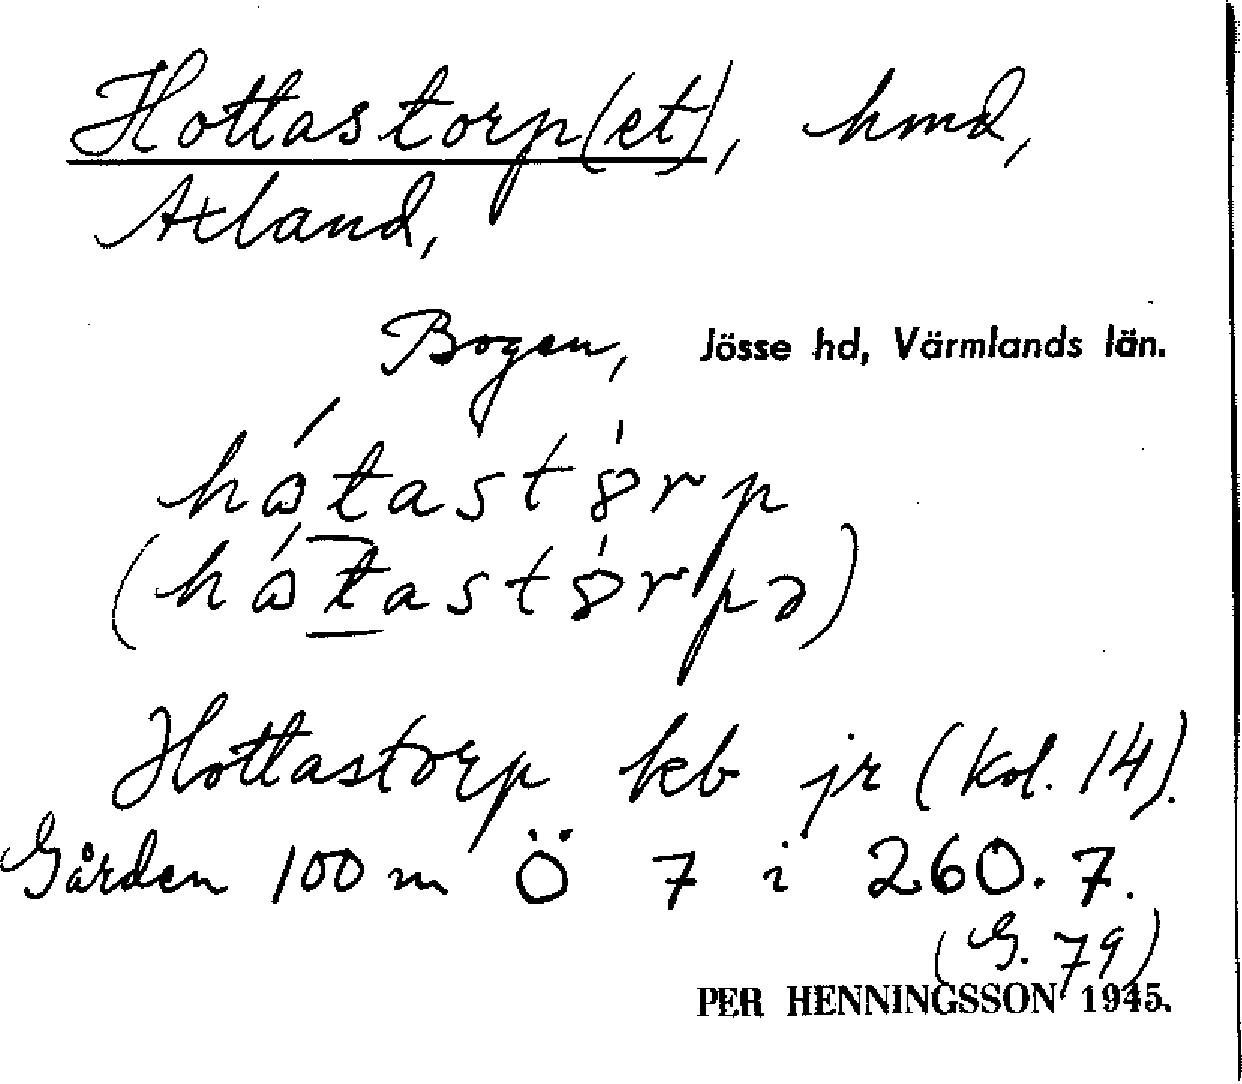 Hottastorp(et), hmd,
Axland,
Bogen, Jösse hd, Värmlands län.
Hottastorp kb jr (kol. 14).
Gården 100 m Ö 7 i 260.7.
(G. 79)
PER HENNINGSSON 1945.